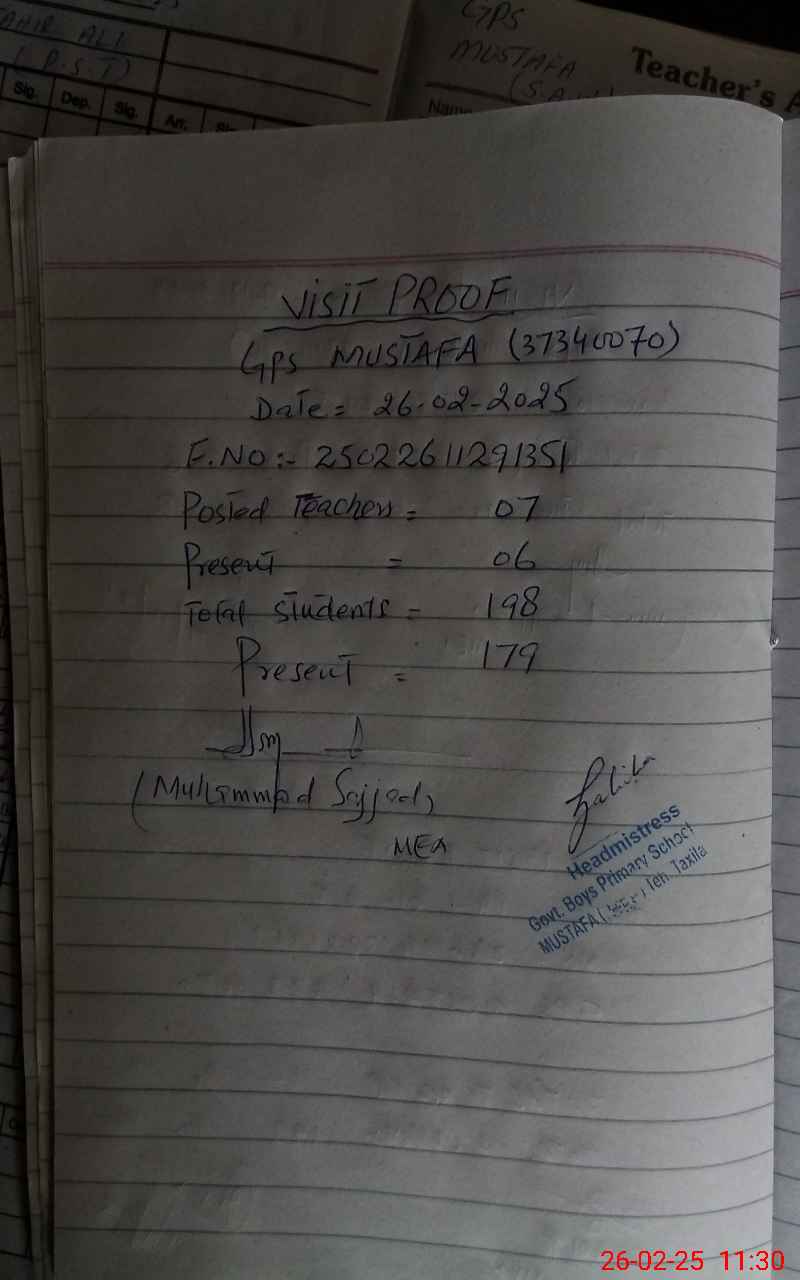 AHIR ALI
(P.S.T)
Sig. Dep. Sig. Arr.
GPS
MUSTAFA
Teacher's
Name
VISIT PROOF
GPS MUSTAFA (37340070)
Date = 26-02-2025
E.NO :- 25022611291351
Posted Teachers = 07
Present = 06
Total Students = 198
Present = 179
(Muhammad Sajjad)
MEA
Headmistress
Govt. Boys Primary School
MUSTAFA ( Teh. Taxila
26-02-25 11:30